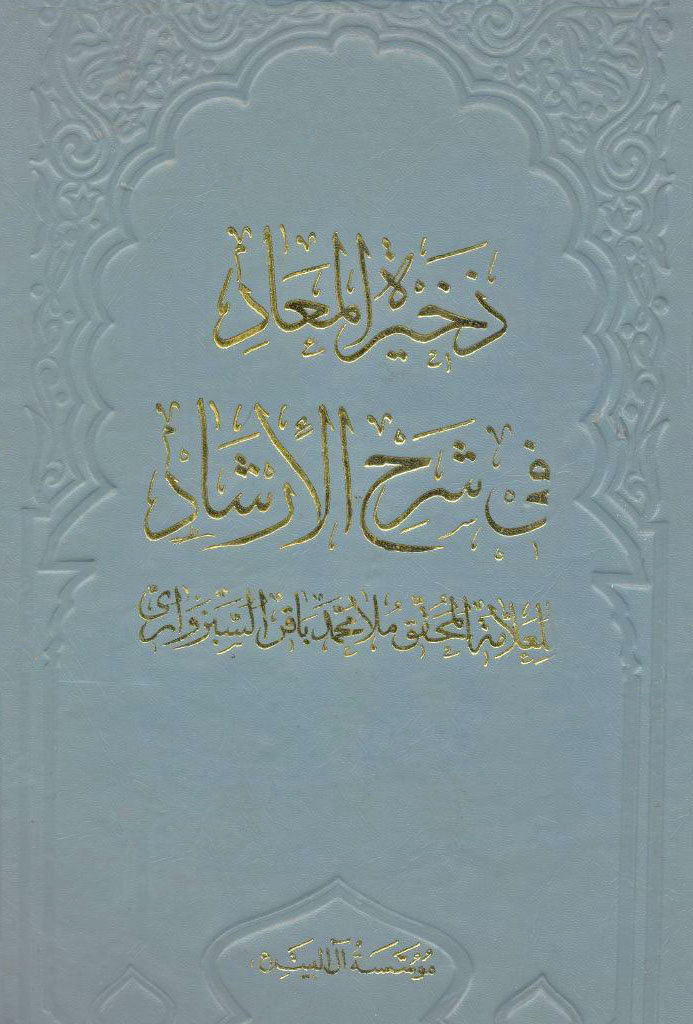 ذخيرة المعاد
في شرح الإرشاد
للعلامة المحقق ملا محمد باقر السبزواري
مؤسسة آل البيت ع